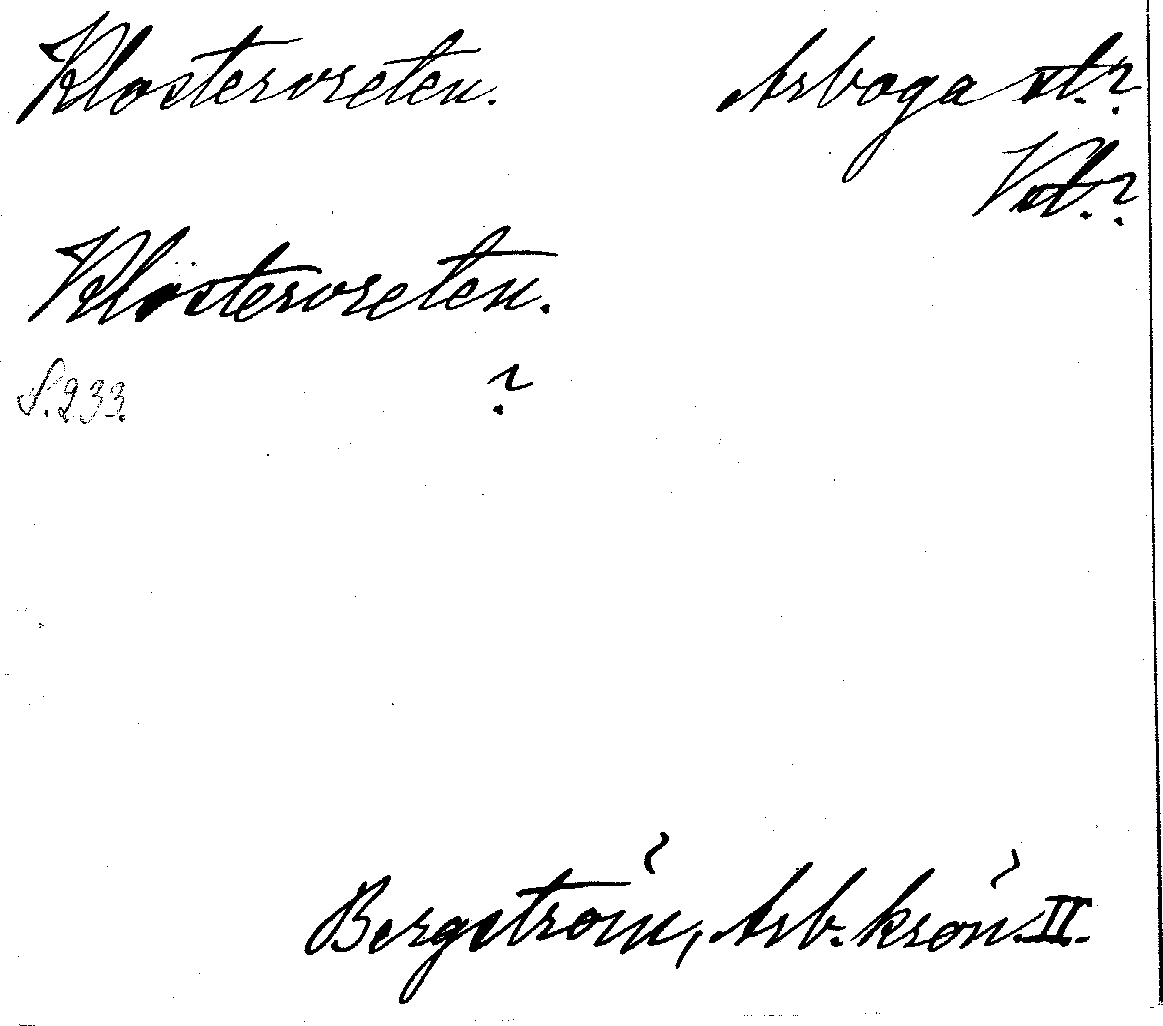 Klostervreten. Arboga st.?
Vst.?
Klostervreten.
S. 233. ?
Bergström, Arb. krön. II.